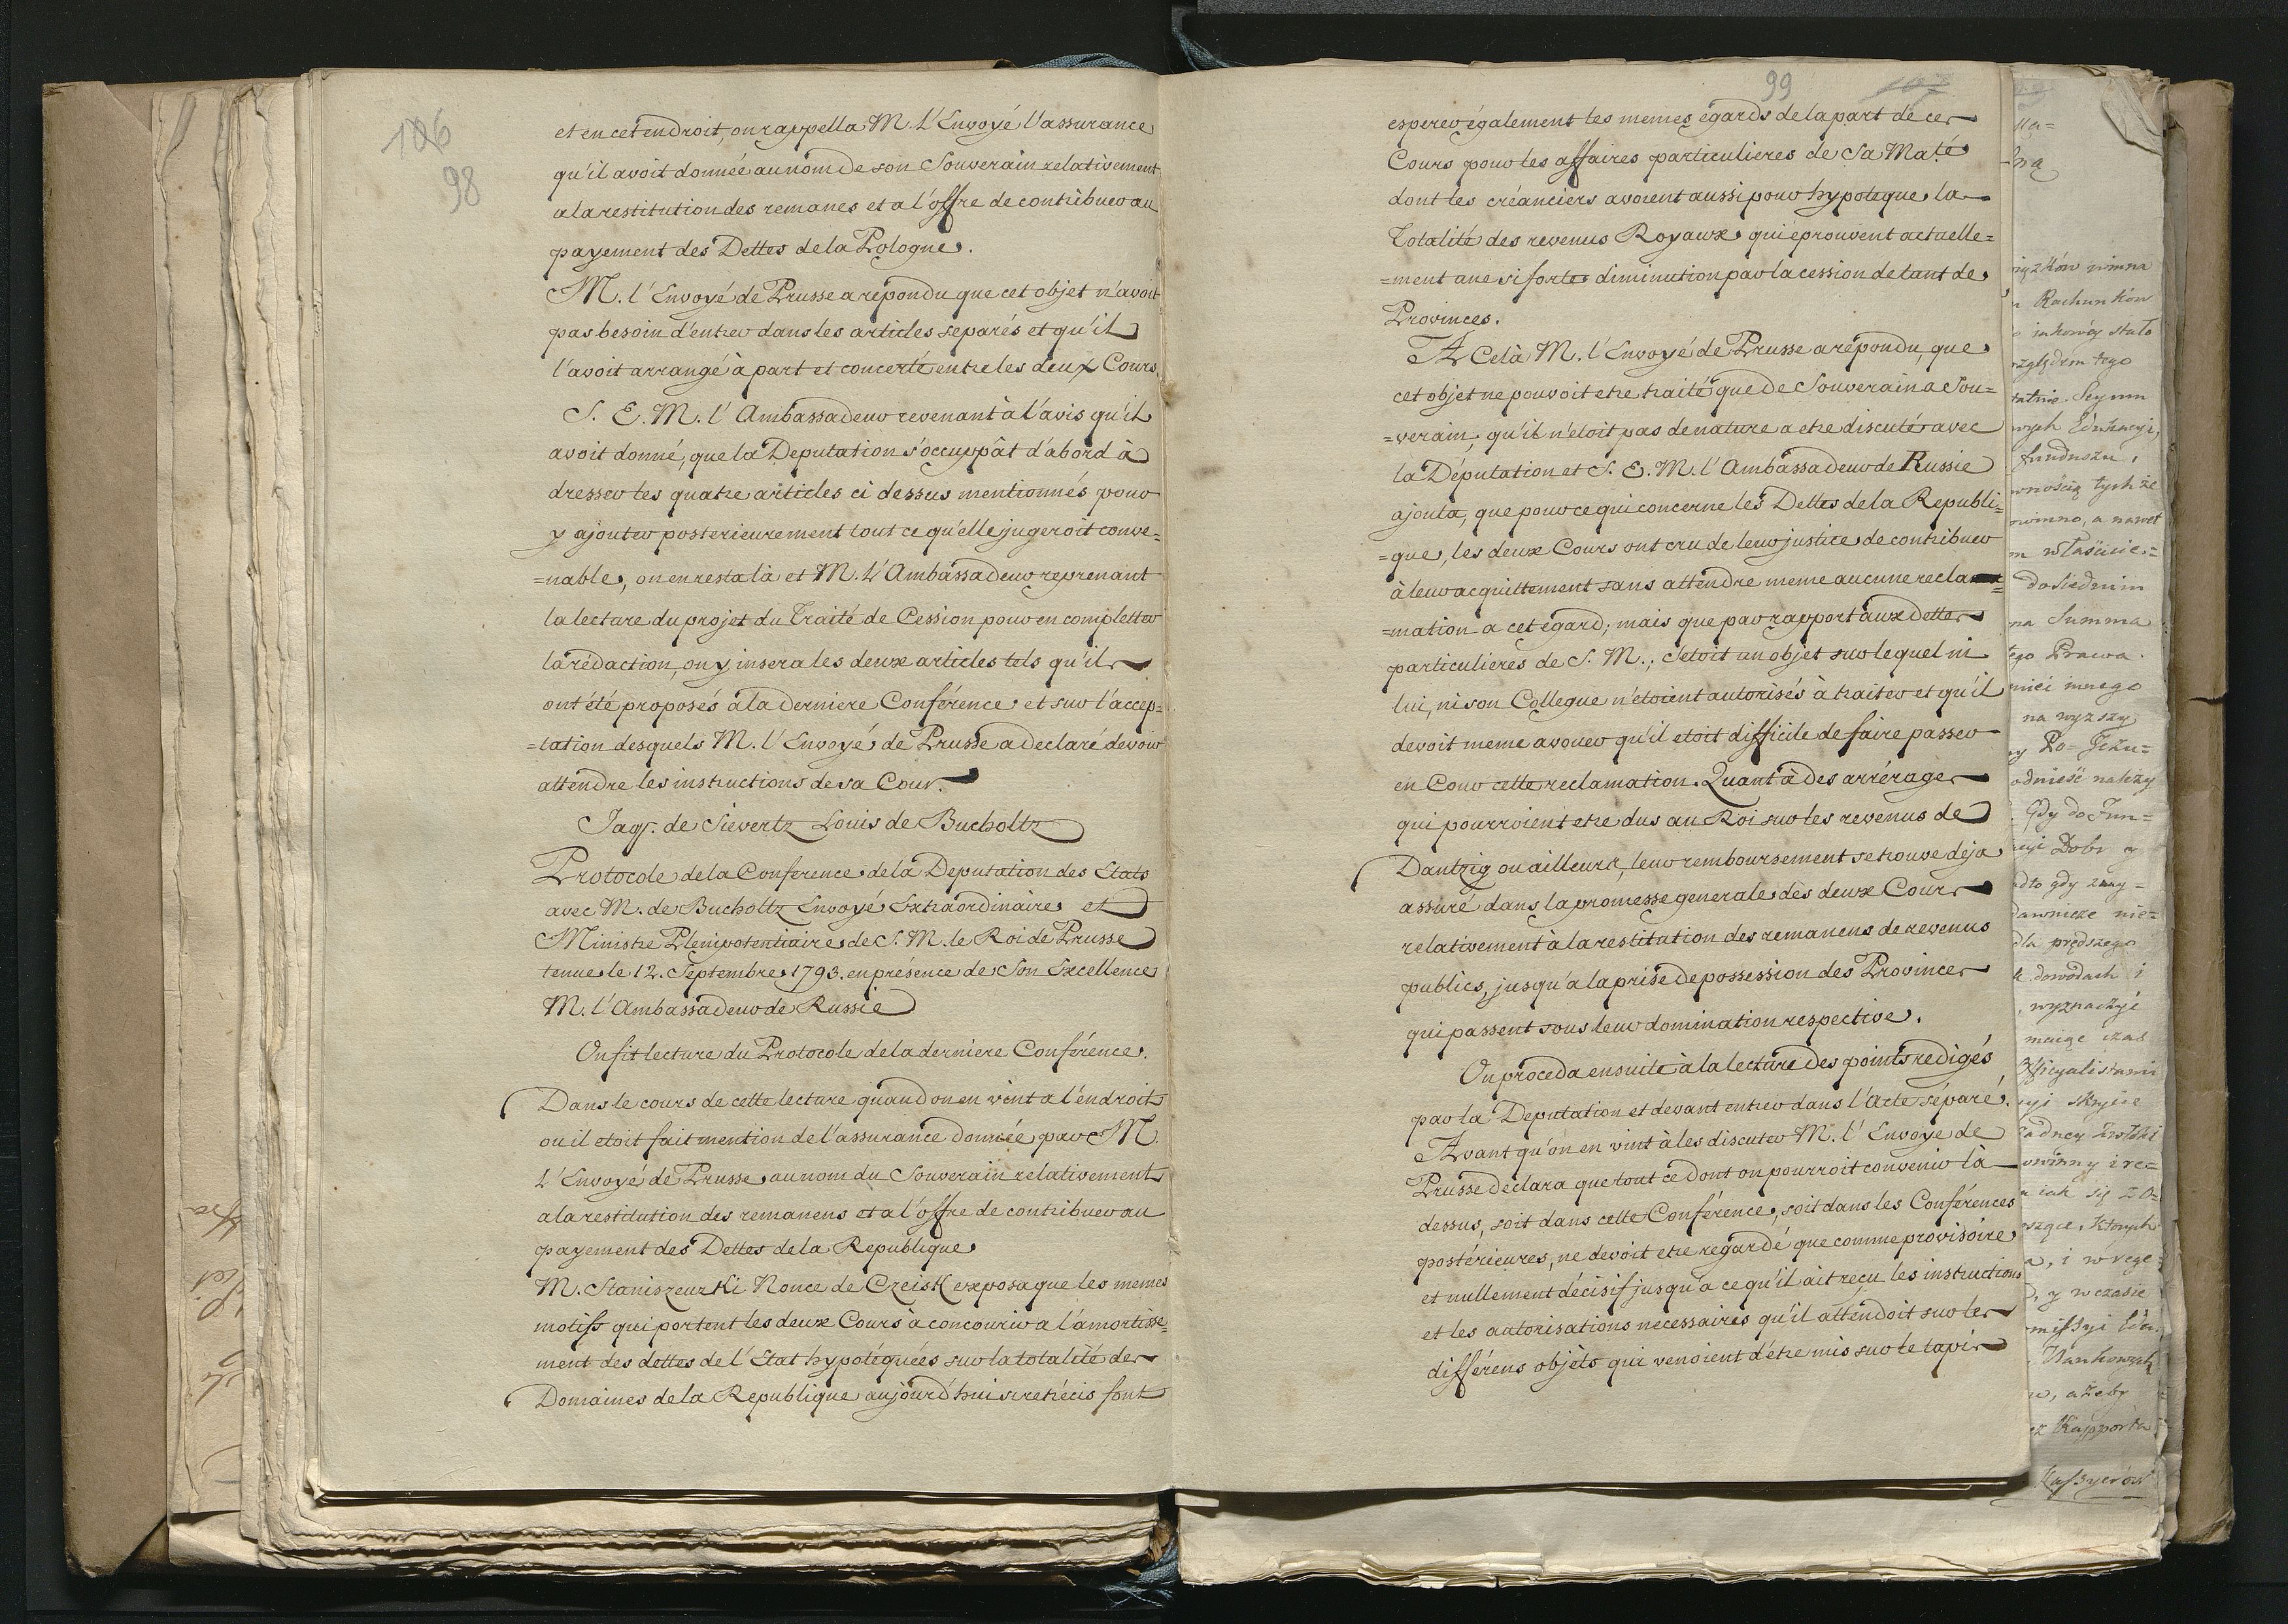 106
98
et en cet endroit, on rappella M. L'Envoyé l'assurance
qu'il avoit donnée au nom de son Souverain relativement
a la restitution des remanes et a l'offre de contribuer au
payement des Dettes de la Pologne.
M. l'Envoyé de Prusse a répondu que cet objet n'avoit
pas besoin d'entrer dans les articles separés et qu'il
l'avoit arrangé à part et concerté entre les deux Cours.
S. E. M. l'Ambassadeur revenant à l'avis qu'il
avoit donné, que la Deputation s'occuppât d'abord à
dresser les quatre articles ci dessus mentionnés pour
y ajouter posterieurement tout ce qu'elle jugeroit conve=
=nable, on en resta là et M. L'Ambassadeur reprenant
la lecture du projet du Traité de Cession pour en completter
la rédaction, on y insera les deux articles tels qu'ils
ont été proposés à la derniere Conférence et sur l'accep=
=tation desquels M. l'Envoyé de Prusse a declaré devoir
attendre les instructions de sa Cour.
Jaqs. de Sievertz Louis de Bucholtz
Protocole de la Conference de la Deputation des Etats
avec M. de Bucholtz Envoyé Extraordinaire et
Ministre Plenipotentiaire de S. M. le Roi de Prusse
tenue le 12. Septembre 1793. en présence de Son Excellence
M. l'Ambassadeur de Russie
On fit lecture du Protocole de la derniere Conférence.
Dans le cours de cette lecture quand on en vint a l'endroit
ou il etoit fait mention de l'assurance donnée par M.
L'Envoyé de Prusse au nom du Souverain relativement
a la restitution des remanens et a l'offre de contribuer au
payement des Dettes de la Republique
M. Staniszewski Nonce de Czersk exposa que les memes
motifs qui portent les deux Cours à concourir a l'amortisse=
ment des dettes de l'Etat hypotéquées sur la totalité des
Domaines de la Republique aujourd'hui si retrécis font
99
107
esperer également les memes égards de la part de ces
Cours pour les affaires particulieres de Sa Maté
dont les créanciers avoient aussi pour hypoteque la
Totalité des revenus Royaux qui éprouvent actuelle=
=ment une si forte diminution par la cession de tant de
Provinces.
A Celà M. l'Envoyé de Prusse a répondu, que
cet objet ne pouvoit etre traité que de Souverain a Sou=
=verain, qu'il n'etoit pas de nature a etre discuté avec
la Députation et S. E. M. l'Ambassadeur de Russie
ajouta, que pour ce qui concerne les Dettes de la Republi=
=que, les deux Cours ont cru de leur justice de contribuer
à leur acquittement sans attendre meme aucune recla=
=mation a cet égard; mais que par rapport aux dettes
particulieres de S. M., c'etoit un objet sur lequel ni
lui, ni son Collegue n'etoient autorisés à traiter et qu'il
devoit meme avouer qu'il etoit difficile de faire passer
en Cour cette reclamation. Quant à des arrérages
qui pourroient etre dus au Roi sur les revenus de
Dantzig ou ailleurs, leur remboursement se trouve déja
assuré dans la promesse generale des deux Cours
relativement à la restitution des remanens de revenus
publics, jusqu'a la prise de possession des Provinces
qui passent sous leur domination respective.
On proceda ensuite à la lecture des points redigés
par la Deputation et devant entrer dans l'Acte séparé.
Avant qu'on en vint à les discuter M. l'Envoyé de
Prusse déclara que tout ce dont on pourroit convenir là
dessus, soit dans cette Conférence, soit dans les Conférences
postérieures, ne devoit etre regardé que comme provisoire
et nullement décisif jusqu'a ce qu'il ait reçu les instructions
et les autorisations necessaires qu'il attendoit sur les
différens objets qui venoient d'étre mis sur le tapis
Rachunków
Seymu
funduszu,
tychże
a nawet
Summa
Prawa
innego
na wyższy
należy
Dobr
dla prędszego
dowodach i
wyznaczyć
czas
ażeby
Rapporta
Kassyerów